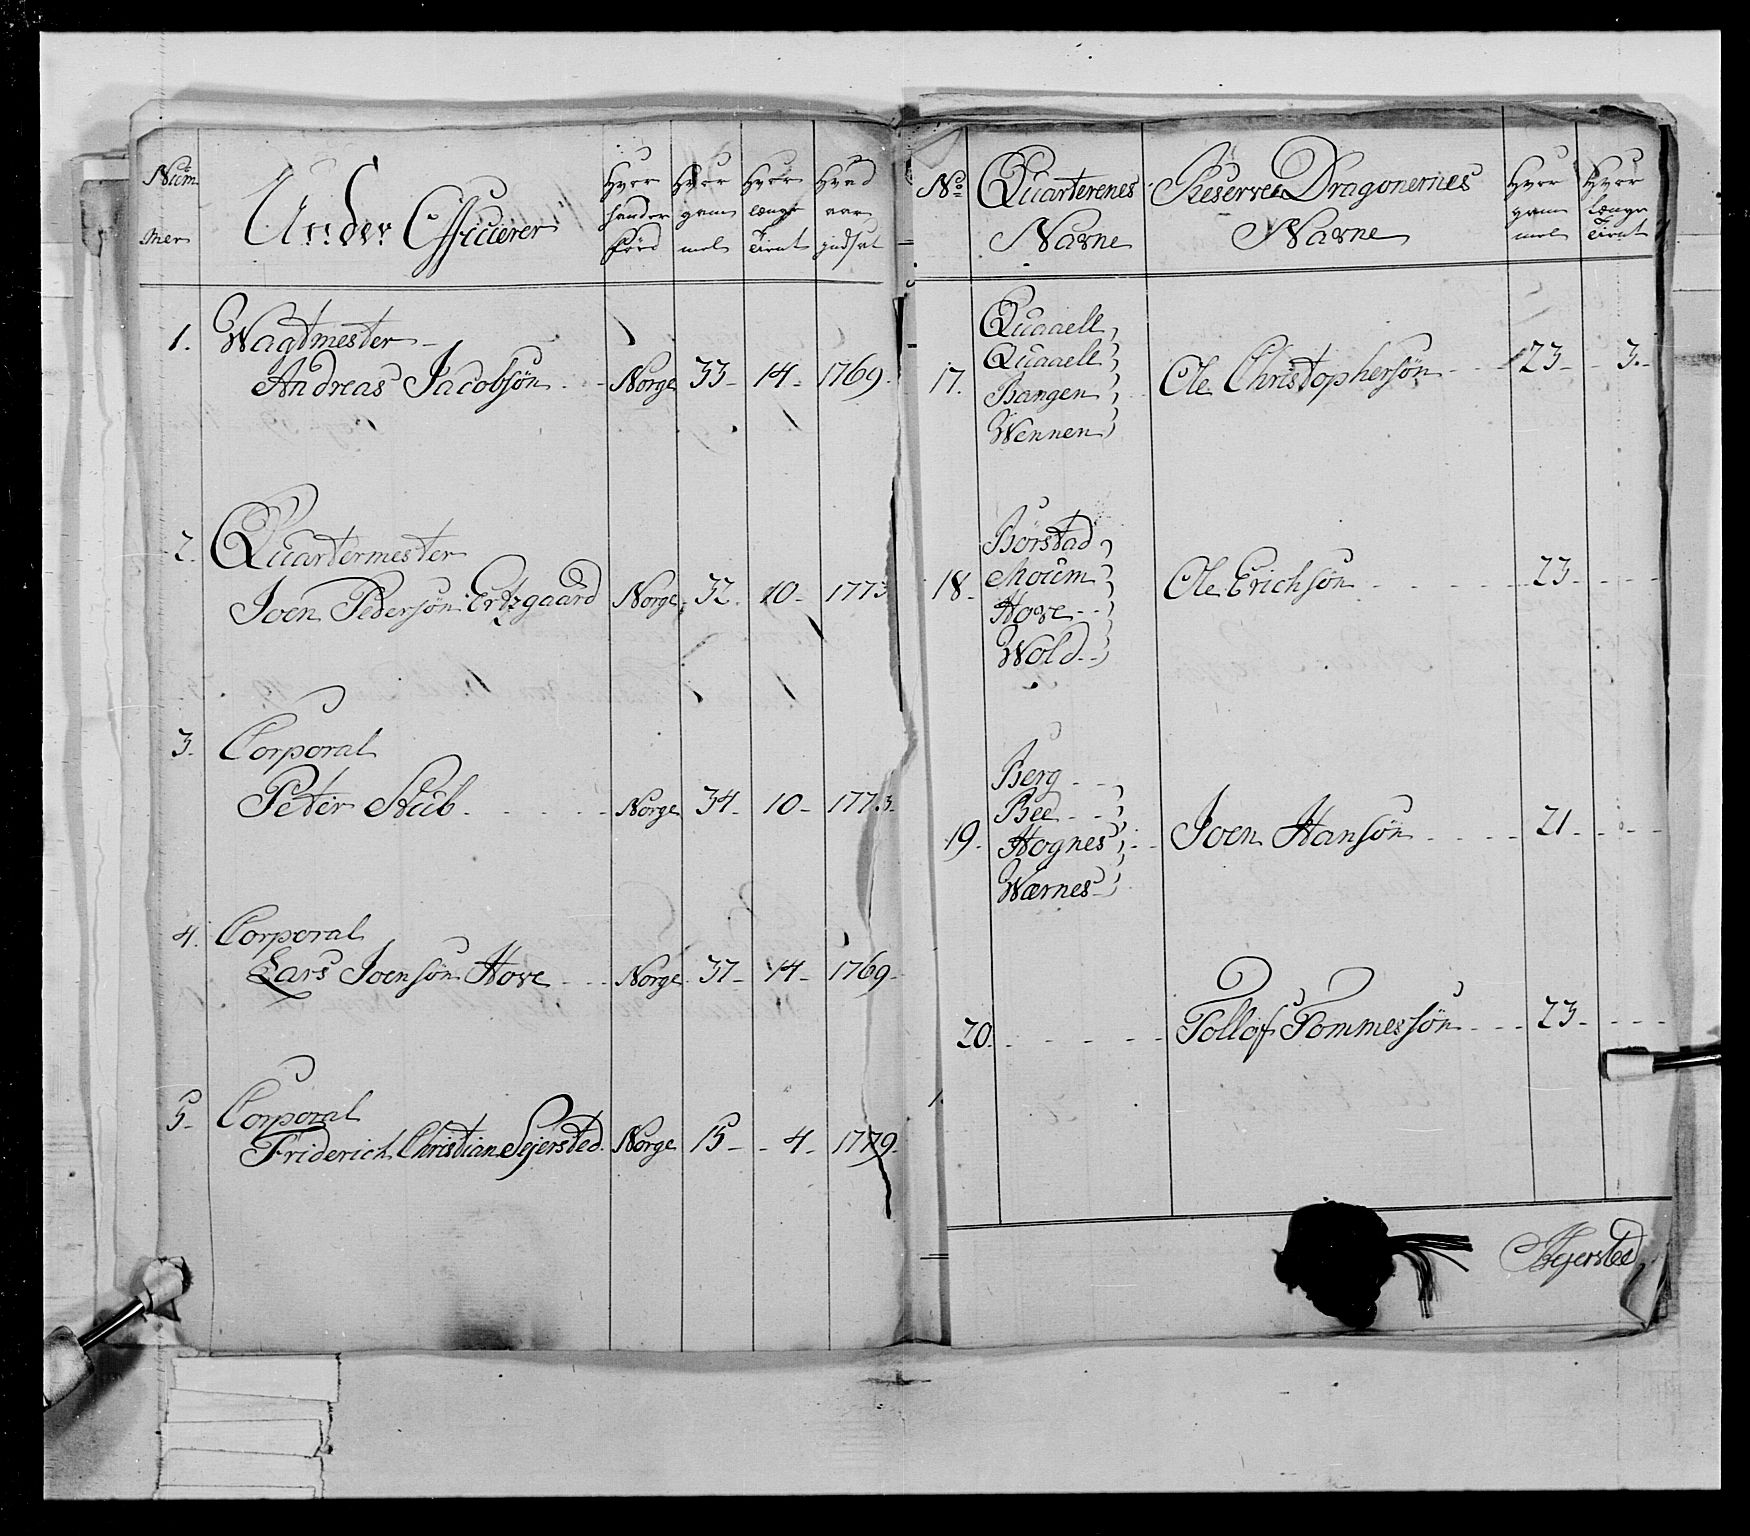 Num
mer
Under Officierer
Hvor
hander
fød
Hvor
gam
mel
Hvor
længe
tient
Hvad
aar
indsat
1. Wagtmester
Andreas Jacobsøn Norge 33 14 1769
2. Quartermester
Joen Pedersøn Ertzgaard Norge 32 10 1773
3. Corporal
Peter Stub Norge 34 10 1773
4. Corporal
Lars Joensøn Hove Norge 37 14 1769
5. Corporal
Friderich Christian Sejersted Norge 15 4 1779
No
Quarterenes
Navne
Reserve Dragonernes
Navne
Hvor
gam
mel
Hvor
længe
tient
Quaaell
Quaaell
17. Bangen Ole Christophersøn 23 3
Wennen
Børstad
18. Moum Ole Erichsøn 23
Hove
Wold
Berg
Bee
19. Hognes Joen Hansøn 21
Wærnes
20. Tollof Tommesøn 23
Sejersted